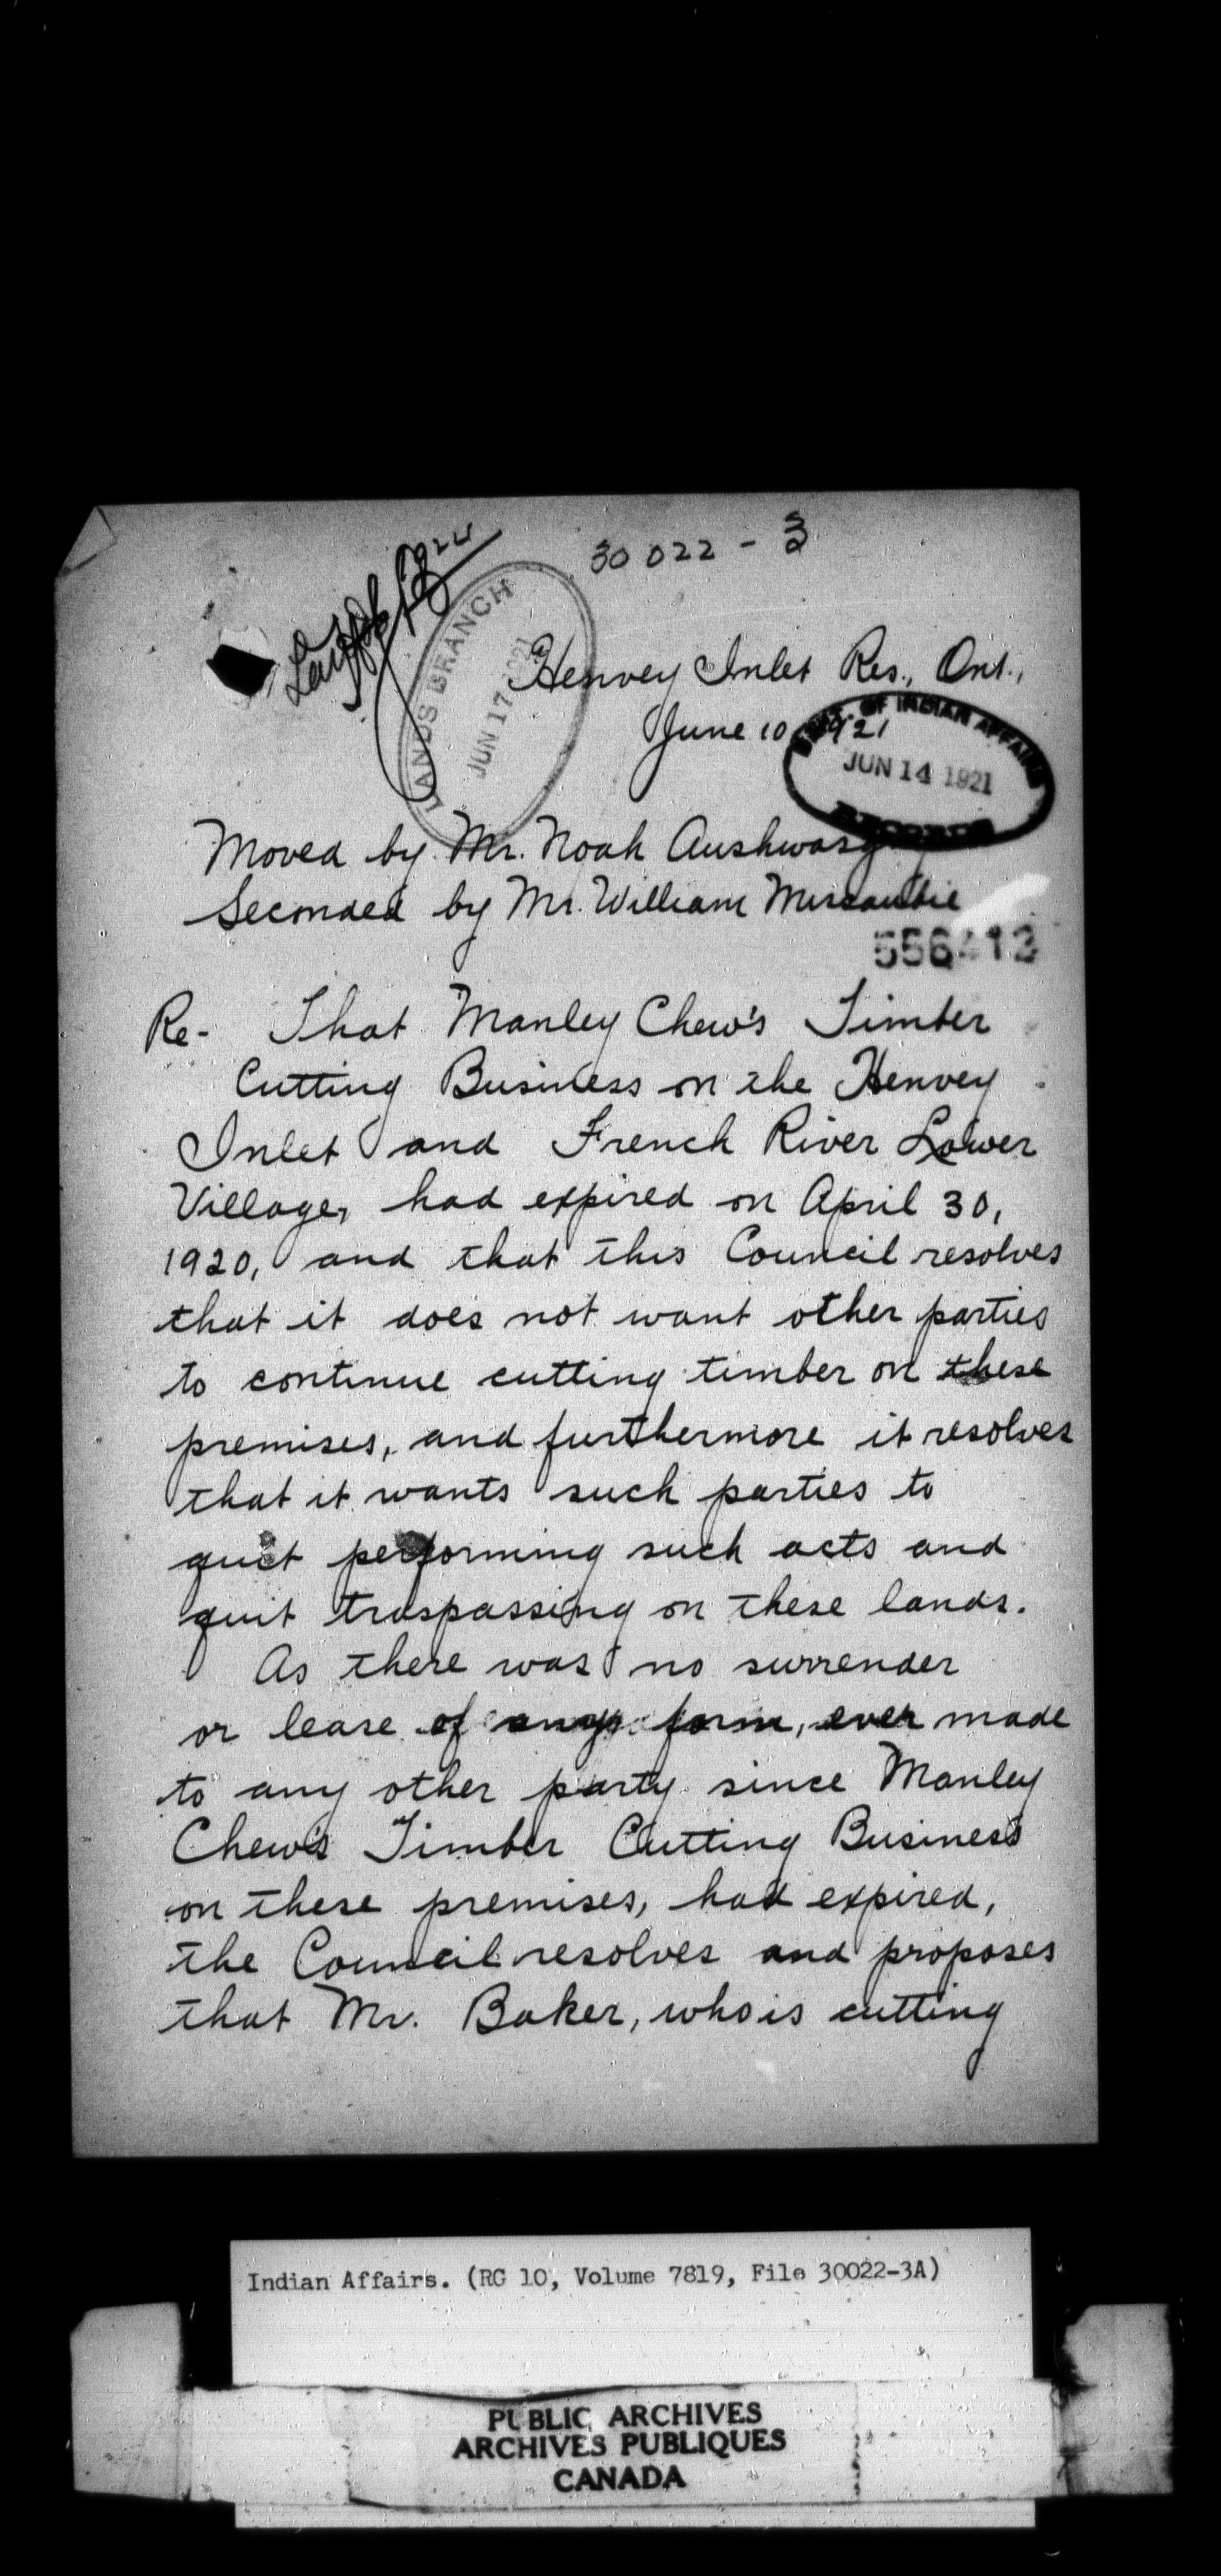 30022-3
LANDS BRANCH
JUN 17 1921
Henvey Inlet Res., Ont.,
June 10, 1921
DEPT. OF INDIAN AFFAIRS
JUN 14 1921
RECORDS
Moved by Mr. Noah
Seconded by Mr. William
556412
Re- That Manley Chew's Timber
Cutting Business on the Henvey
Inlet and French River Lower
Village, had expired on April 30,
1920, and that this Council resolves
that it does not want other parties
to continue cutting timber on these
premises, and furthermore it resolves
that it wants such parties to
quit performing such acts and
quit traspassing on these lands.
As there was no surrender
or lease of any form, ever made
to any other party since Manley
Chew's Timber Cutting Business
on these premises, had expired,
the Council resolves and proposes
that Mr. Baker, who is cutting
Indian Affairs. (RG 10, Volume 7819, File 30022-3A)
PUBLIC ARCHIVES
ARCHIVES PUBLIQUES
CANADA